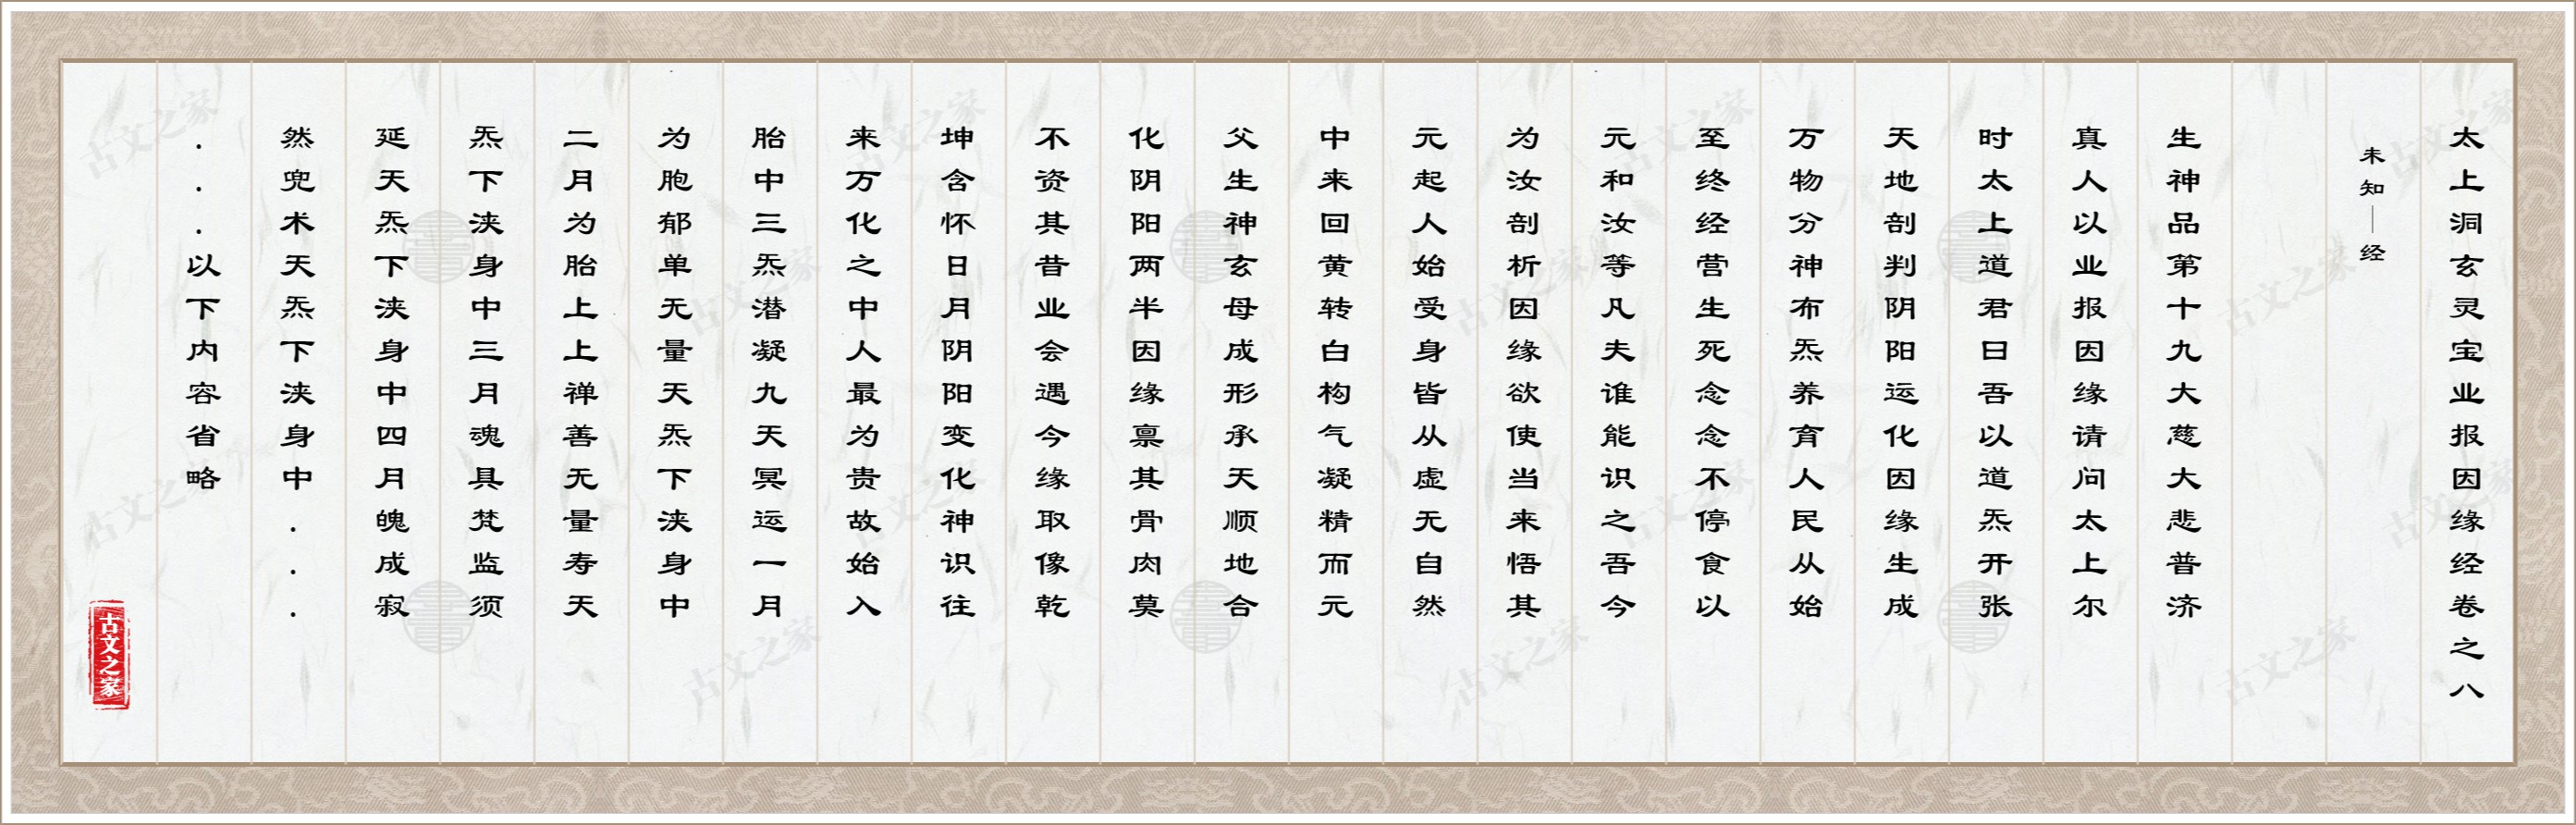 太上洞玄灵宝业报因缘经卷之八
未知｜经
生神品第十九大慈大悲普济
真人以业报因缘请问太上尔
时太上道君曰吾以道炁开张
天地剖判阴阳运化因缘生成
万物分神布炁养育人民从始
至终经营生死念念不停食以
元和汝等凡夫谁能识之吾今
为汝剖析因缘欲使当来悟其
元起人始受身皆从虚无自然
中来回黄转白构气凝精而元
父生神玄母成形承天顺地合
化阴阳两半因缘禀其骨肉莫
不资其昔业会遇今缘取像乾
坤含怀日月阴阳变化神识往
来万化之中人最为贵故始入
胎中三炁潜凝九天冥运一月
为胞郁单无量天炁下浃身中
二月为胎上上禅善无量寿天
炁下浃身中三月魂具梵监须
延天炁下浃身中四月魄成寂
然兜术天炁下浃身中...
...以下内容省略
古文之家